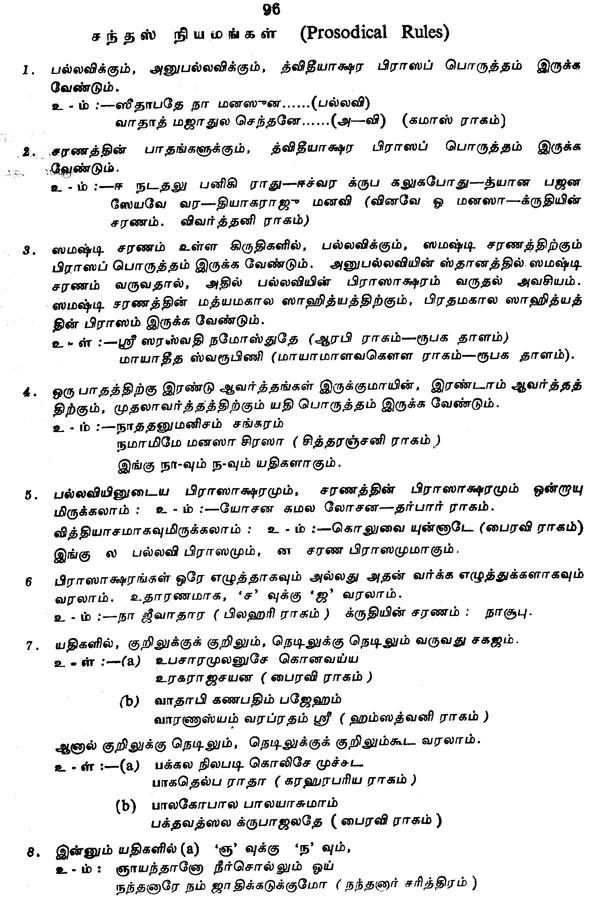 96
சந்தஸ் நியமங்கள் (Prosodical Rules)
1. பல்லவிக்கும், அனுபல்லவிக்கும், த்விதீயாக்ஷர பிராஸப் பொருத்தம் இருக்க
வேண்டும்.
உ - ம் :—ஸீதாபதே நா மனஸுன......(பல்லவி)
வாதாத் மஜாதுல செந்தனே......(அ—வி) (கமாஸ் ராகம்)
2. சரணத்தின் பாதங்களுக்கும், த்விதீயாக்ஷர பிராஸப் பொருத்தம் இருக்க
வேண்டும்.
உ - ம் :—ஈ நடதலு பனிகி ராது—ஈச்வர க்ருப கலுகபோது—த்யான பஜன
ஸேயவே வர—தியாகராஜு மனவி (வினவே ஓ மனஸா—க்ருதியின்
சரணம். விவர்த்தனி ராகம்)
3. ஸமஷ்டி சரணம் உள்ள கிருதிகளில், பல்லவிக்கும், ஸமஷ்டி சரணத்திற்கும்
பிராஸப் பொருத்தம் இருக்க வேண்டும். அனுபல்லவியின் ஸ்தானத்தில் ஸமஷ்டி
சரணம் வருவதால், அதில் பல்லவியின் பிராஸாக்ஷரம் வருதல் அவசியம்.
ஸமஷ்டி சரணத்தின் மத்யமகால ஸாஹித்யத்திற்கும், பிரதமகால ஸாஹித்யத்
தின் பிராஸம் இருக்க வேண்டும்.
உ - ள் :—ஸ்ரீ ஸரஸ்வதி நமோஸ்துதே (ஆரபி ராகம்—ரூபக தாளம்)
மாயாதீத ஸ்வரூபிணி (மாயாமாளவகௌள ராகம்—ரூபக தாளம்).
4. ஒரு பாதத்திற்கு இரண்டு ஆவர்த்தங்கள் இருக்குமாயின், இரண்டாம் ஆவர்த்தத்
திற்கும், முதலாவர்த்தத்திற்கும் யதி பொருத்தம் இருக்க வேண்டும்.
உ - ம் :—நாததனுமனிசம் சங்கரம்
நமாமிமே மனஸா சிரஸா ( சித்தரஞ்சனி ராகம் )
இங்கு நா-வும் ந-வும் யதிகளாகும்.
5. பல்லவியினுடைய பிராஸாக்ஷரமும், சரணத்தின் பிராஸாக்ஷரமும் ஒன்றாயு
மிருக்கலாம் : உ - ம் :—யோசன கமல லோசன—தர்பார் ராகம்.
வித்தியாசமாகவுமிருக்கலாம் : உ - ம் :—கொலுவை யுன்னாடே (பைரவி ராகம்)
இங்கு ல பல்லவி பிராஸமும், ன சரண பிராஸமுமாகும்.
6 பிராஸாக்ஷரங்கள் ஒரே எழுத்தாகவும் அல்லது அதன் வர்க்க எழுத்துக்களாகவும்
வரலாம். உதாரணமாக, ‘ச’ வுக்கு ‘ஜ’ வரலாம்.
உ - ம் :—நா ஜீவாதார ( பிலஹரி ராகம் ) க்ருதியின் சரணம் : நாசூபு.
7. யதிகளில், குறிலுக்குக் குறிலும், நெடிலுக்கு நெடிலும் வருவது சகஜம்.
உ - ள் :—(a) உபசாரமுலனுசே கொனவய்ய
உரகராஜசயன ( பைரவி ராகம் )
(b) வாதாபி கணபதிம் பஜேஹம்
வாரணாஸ்யம் வரப்ரதம் ஸ்ரீ ( ஹம்ஸத்வனி ராகம் )
ஆனால் குறிலுக்கு நெடிலும், நெடிலுக்குக் குறிலும்கூட வரலாம்.
உ - ள் :—(a) பக்கல நிலபடி கொலிசே முச்சட
பாகதெல்ப ராதா ( கரஹரபரிய ராகம் )
(b) பாலகோபால பாலயாசுமாம்
பக்தவத்ஸல க்ருபாஜலதே ( பைரவி ராகம் )
8. இன்னும் யதிகளில் (a) ‘ஞ’ வுக்கு ‘ந’ வும்,
உ - ம் : ஞாயந்தானோ நீர்சொல்லும் ஓய்
நந்தனாரே நம் ஜாதிக்கடுக்குமோ ( நந்தனார் சரித்திரம் )